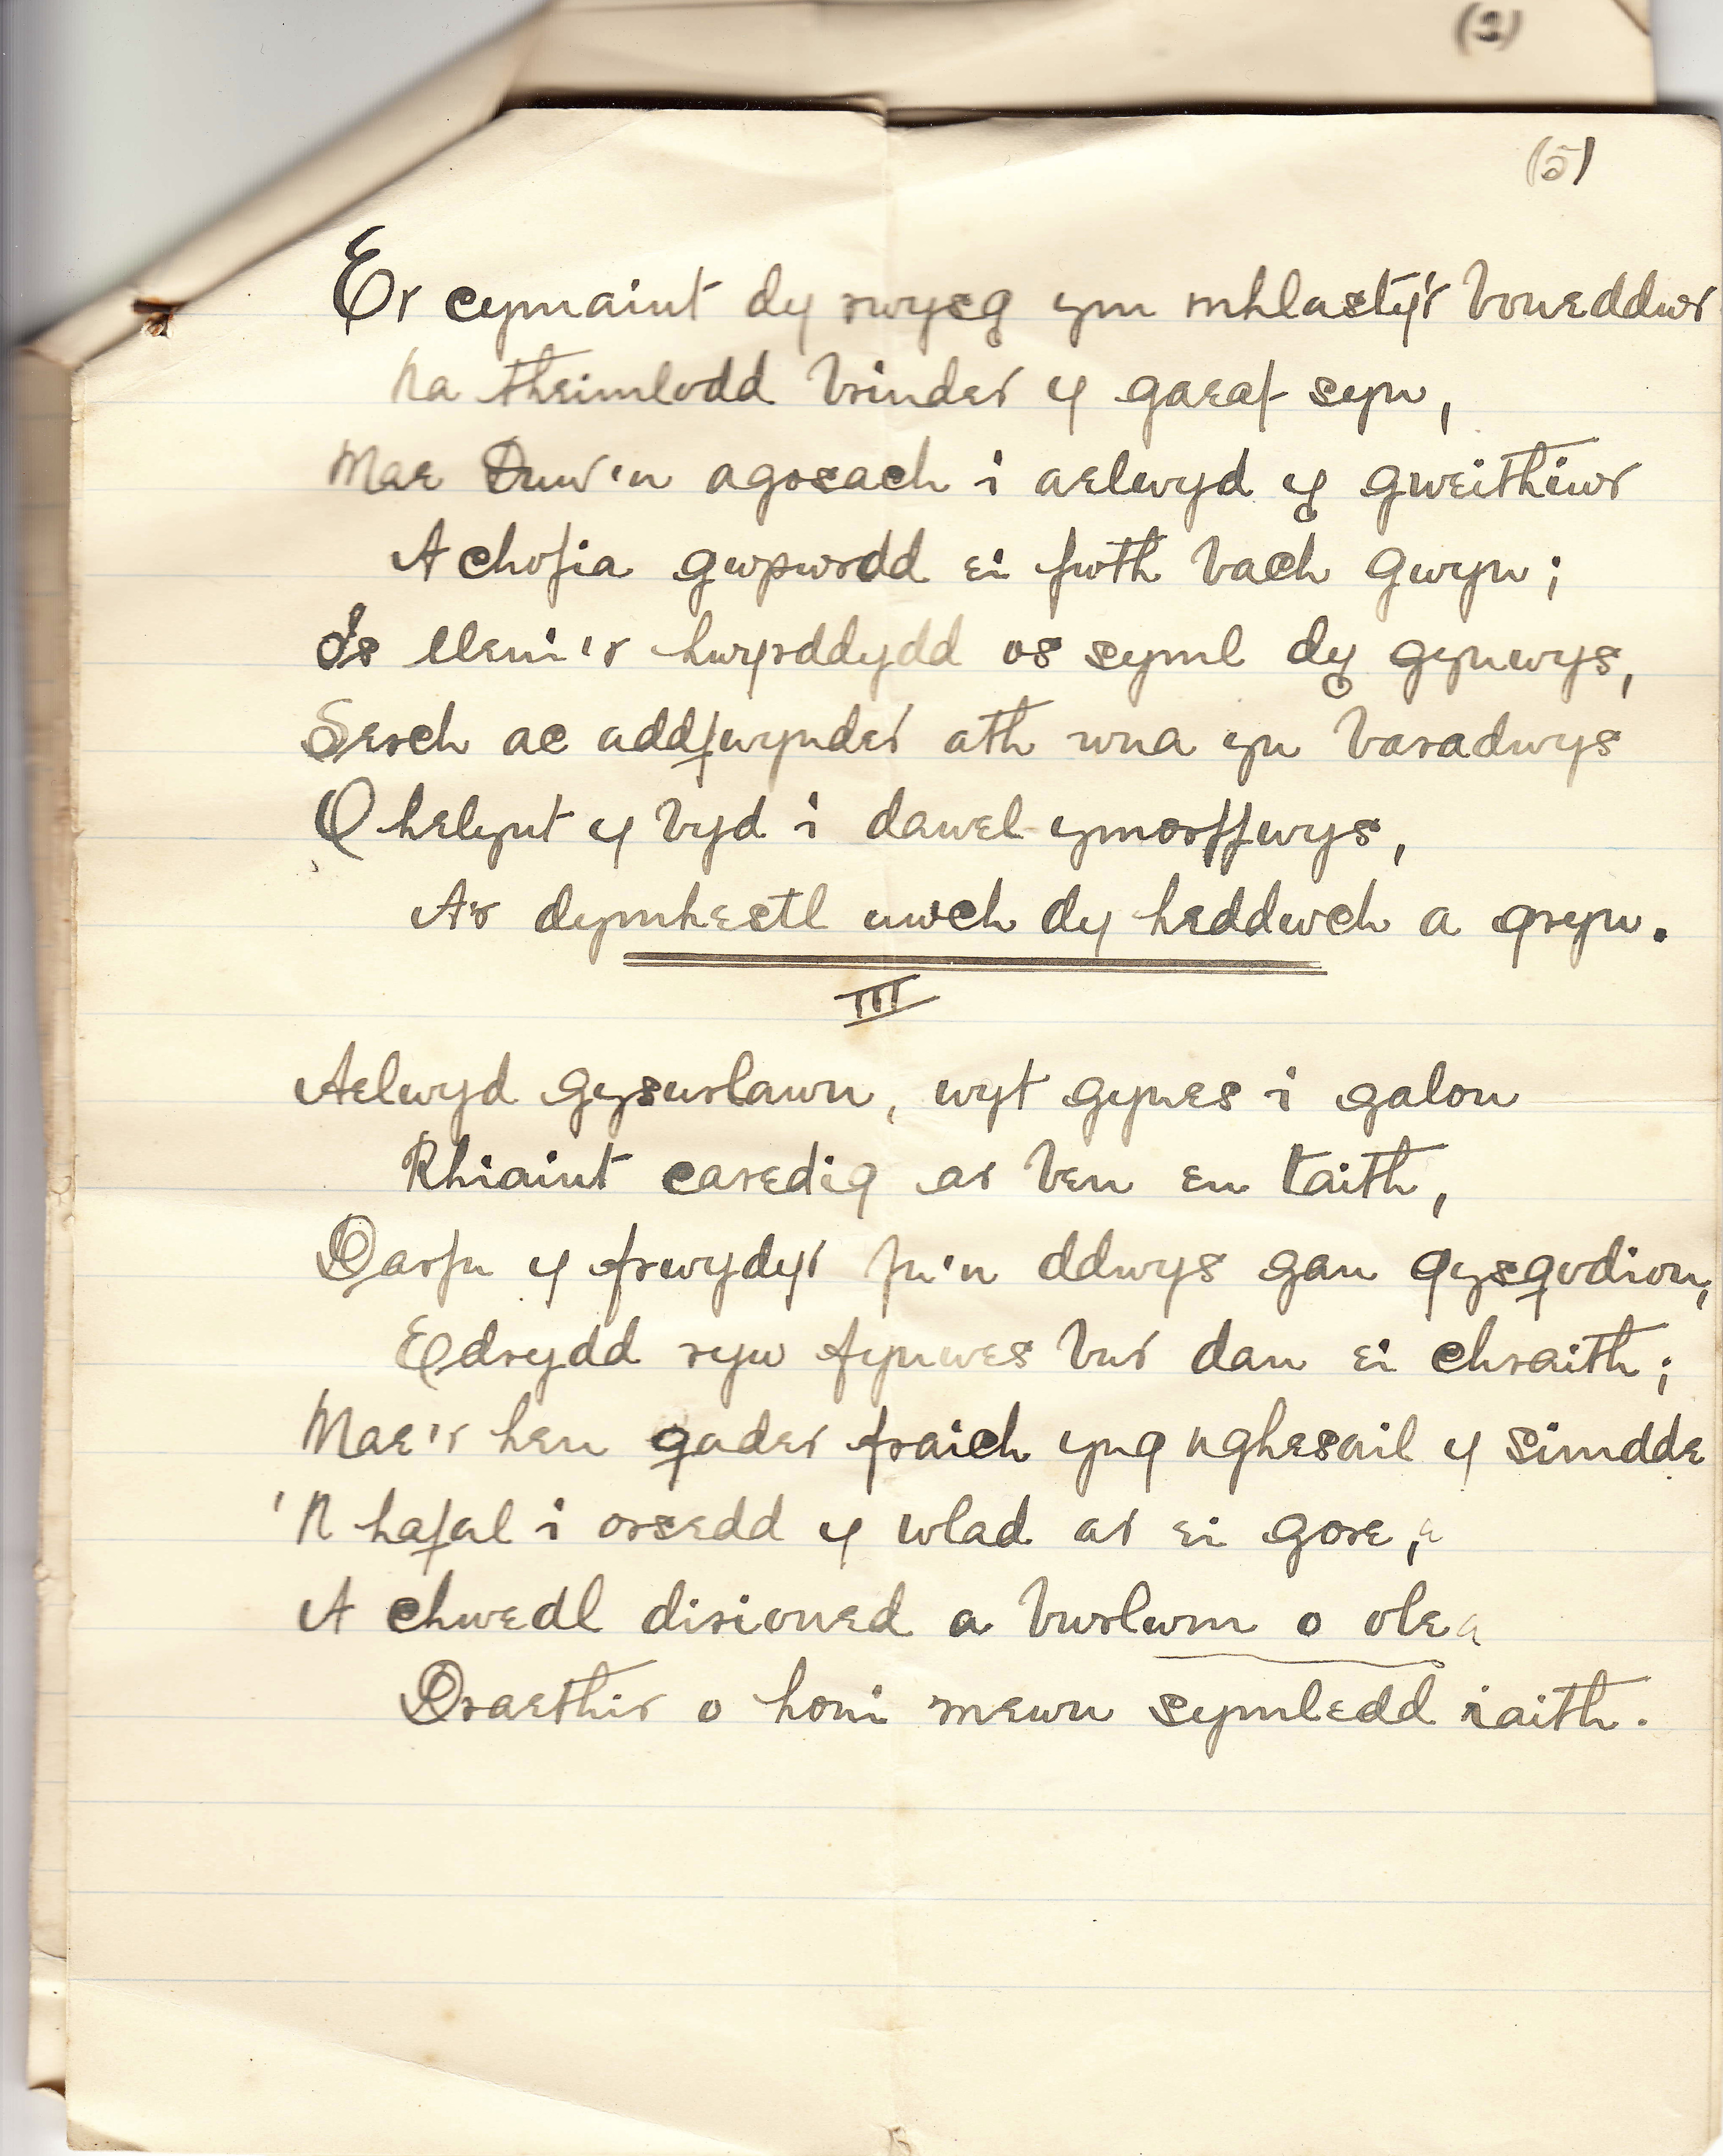 (2)
(5)
Er cymaint dy rwysg ym mhlasty'r boneddwr
Na theimlodd brinder y gaeaf syn,
Mae Duw'n agosach i aelwyd y gweithiwr
A chofia gwpwrdd ei fwth bach gwyn;
Is lleni'r hwyrddydd os syml dy gynwys,
Serch ac addfwynder ath wna yn baradwys
O helynt y byd i dawel ymorffwys,
A'r dymhestl uwch dy heddwch a gryn.
III
Aelwyd gysurlawn, wyt gynes i galon
Rhiaint caredig ar ben eu taith,
Darfu y frwydyr fu'n ddwys gan gysgodion,
Edrydd ryw fynwes bur dan ei chraith;
Mae'r hen gader fraich yng nghesail y simdde
'N hafal i orsedd y wlad ar ei gore,
A chwedl dirioned a bwrlwm o ole
Draethir o honi mewn symledd iaith.